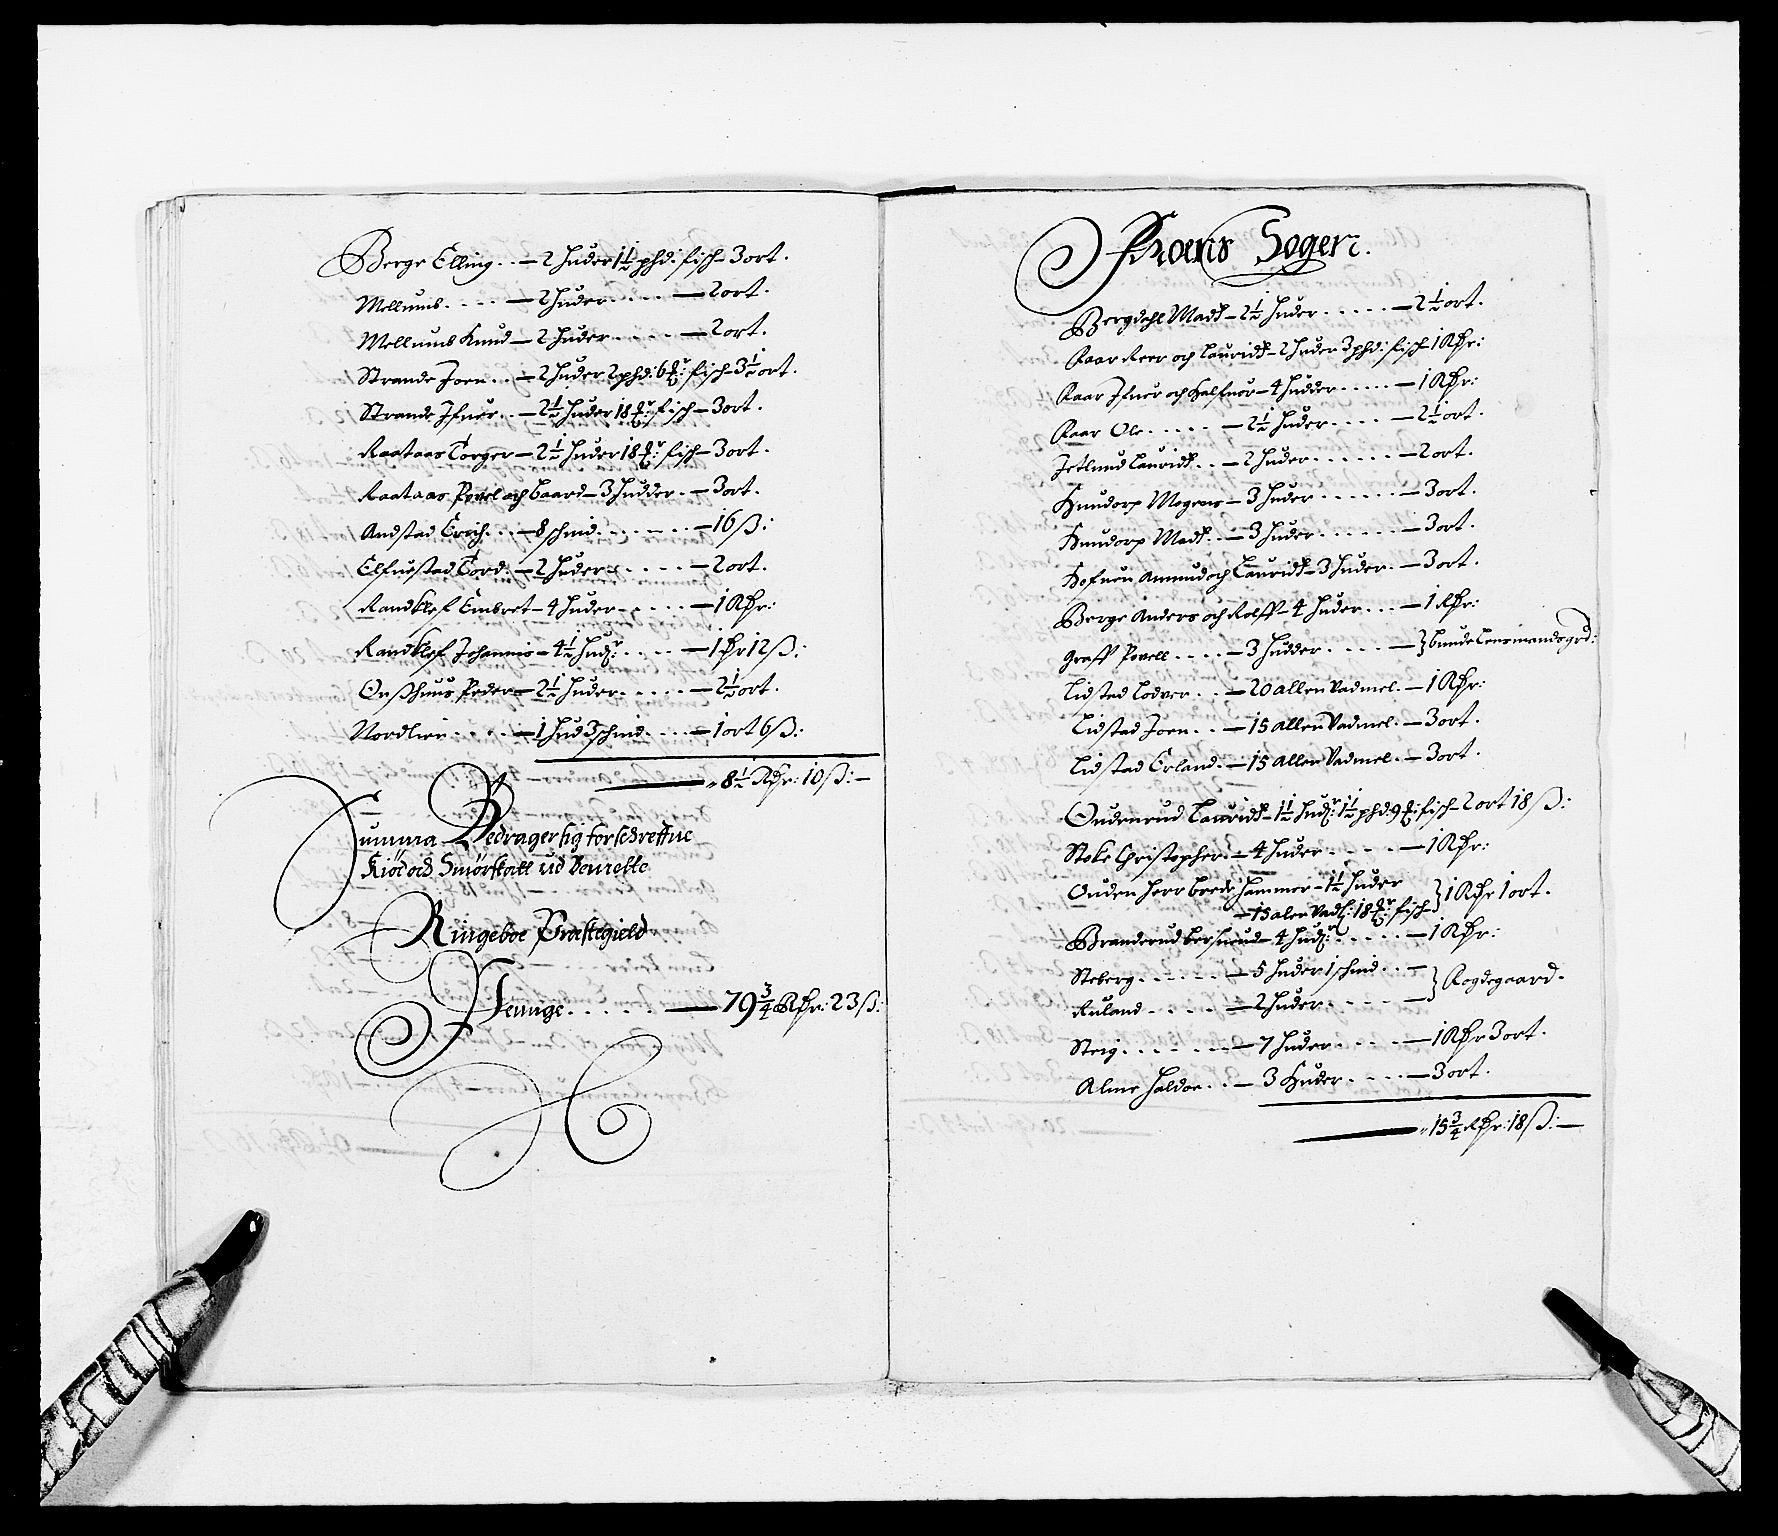 Berge Elling . . — 2 Huder 1½ phd: fisch — 3 ort .
Mellums . . . . — 2 Huder . . . . — 2 ort .
Mellums Knud — 2 Huder . . . . — 2 ort .
Strande Joen . . — 2 Huder 2 phd: 6 fisch — 3½ ort .
Strande Ifuer . . — 2½ Huder 18 fisch — 3 ort .
Raataas Torger — 2½ Huder 18 fisch — 3 ort .
Raataas Povel och Baard — 3 Hudder . — 3 ort .
Andstad Erich . . — 8 schind . . . . . — 16 ß :
Elfuestad Tord . — 2 Huder . . . . — 2 ort .
Randklef Embret — 4 Huder . . . . — 1 Rdr :
Randklef Johannis — 4½ Hud : . . . — 1 dr 12 ß :
Onsshuus Peder — 2½ Huder . . . . — 2½ ort .
Nordlien . . . . — 1 Hud 3 schind . . . — 1 ort 6 ß :
— 8½ Rdr : 10 ß : —
Summa Bedrager sig forschreffne
Kiöd och Smörskatt ud bemelte
Ringeboe Præstegield
Penige . . . . . . — 79¾ Rdr : 23 ß :
Froens Sogen .
Bergdahl Madt — 2½ Huder . . . . . — 2½ ort .
Kaar Peer och Lauridt — 2 Huder 3 phd : fisch 1 Rdr :
Kaar Ifuer och Halfuor — 4 Hudder . . . . . — 1 Rdr :
Kaar Ole . . . . . — 2½ Huder . . . . — 2½ ort .
Jetlund Lauridt . . — 2 Huder . . . . . . — 2 ort .
Hundorp Mogens — 3 Huder . . . . . . — 3 ort .
Hundorp Madt . . — 3 Huder . . . . . . — 3 ort .
Hofuen Amund och Lauridt — 3 Huder . — 3 ort .
Berge Anders och Rolff — 4 Huder . . . — 1 Rdr :
Graff Povell . . . . — 3 Hudder . . . . . — } bunde Lensmands grd :
Lidstad Lodver . . — 20 allen Vadmel . — 1 Rdr :
Lidstad Joen . . — 15 allen Vadmel . — 3 ort .
Lidstad Erland . — 15 allen Vadmel . — 3 ort .
Oudenrud Lauridt — 1½ Hud : 1½ phd 9 fisch 2 ort 18 ß :
Stoke Christopher . — 4 Huder . . . . . — 1 Rdr :
Ouden Herr Brede Hammer — 1½ Huder
— 15 alen Vad : 18 fisch — } 1 Rdr 1 ort .
Branderud — 4 Hud : . . . . . — 1 Rdr :
Steberg . . . . . — 5 Huder 1 schind . . —
Ruland . . . . — 2 Huder . . . . — } Rogdegaard .
Steig . . . . . . — 7 Huder . . . . — 1 Rdr 3 ort .
Alme Haldor . . — 3 Huder . . . . — 3 ort .
— 15¾ Rdr : 18 ß : —